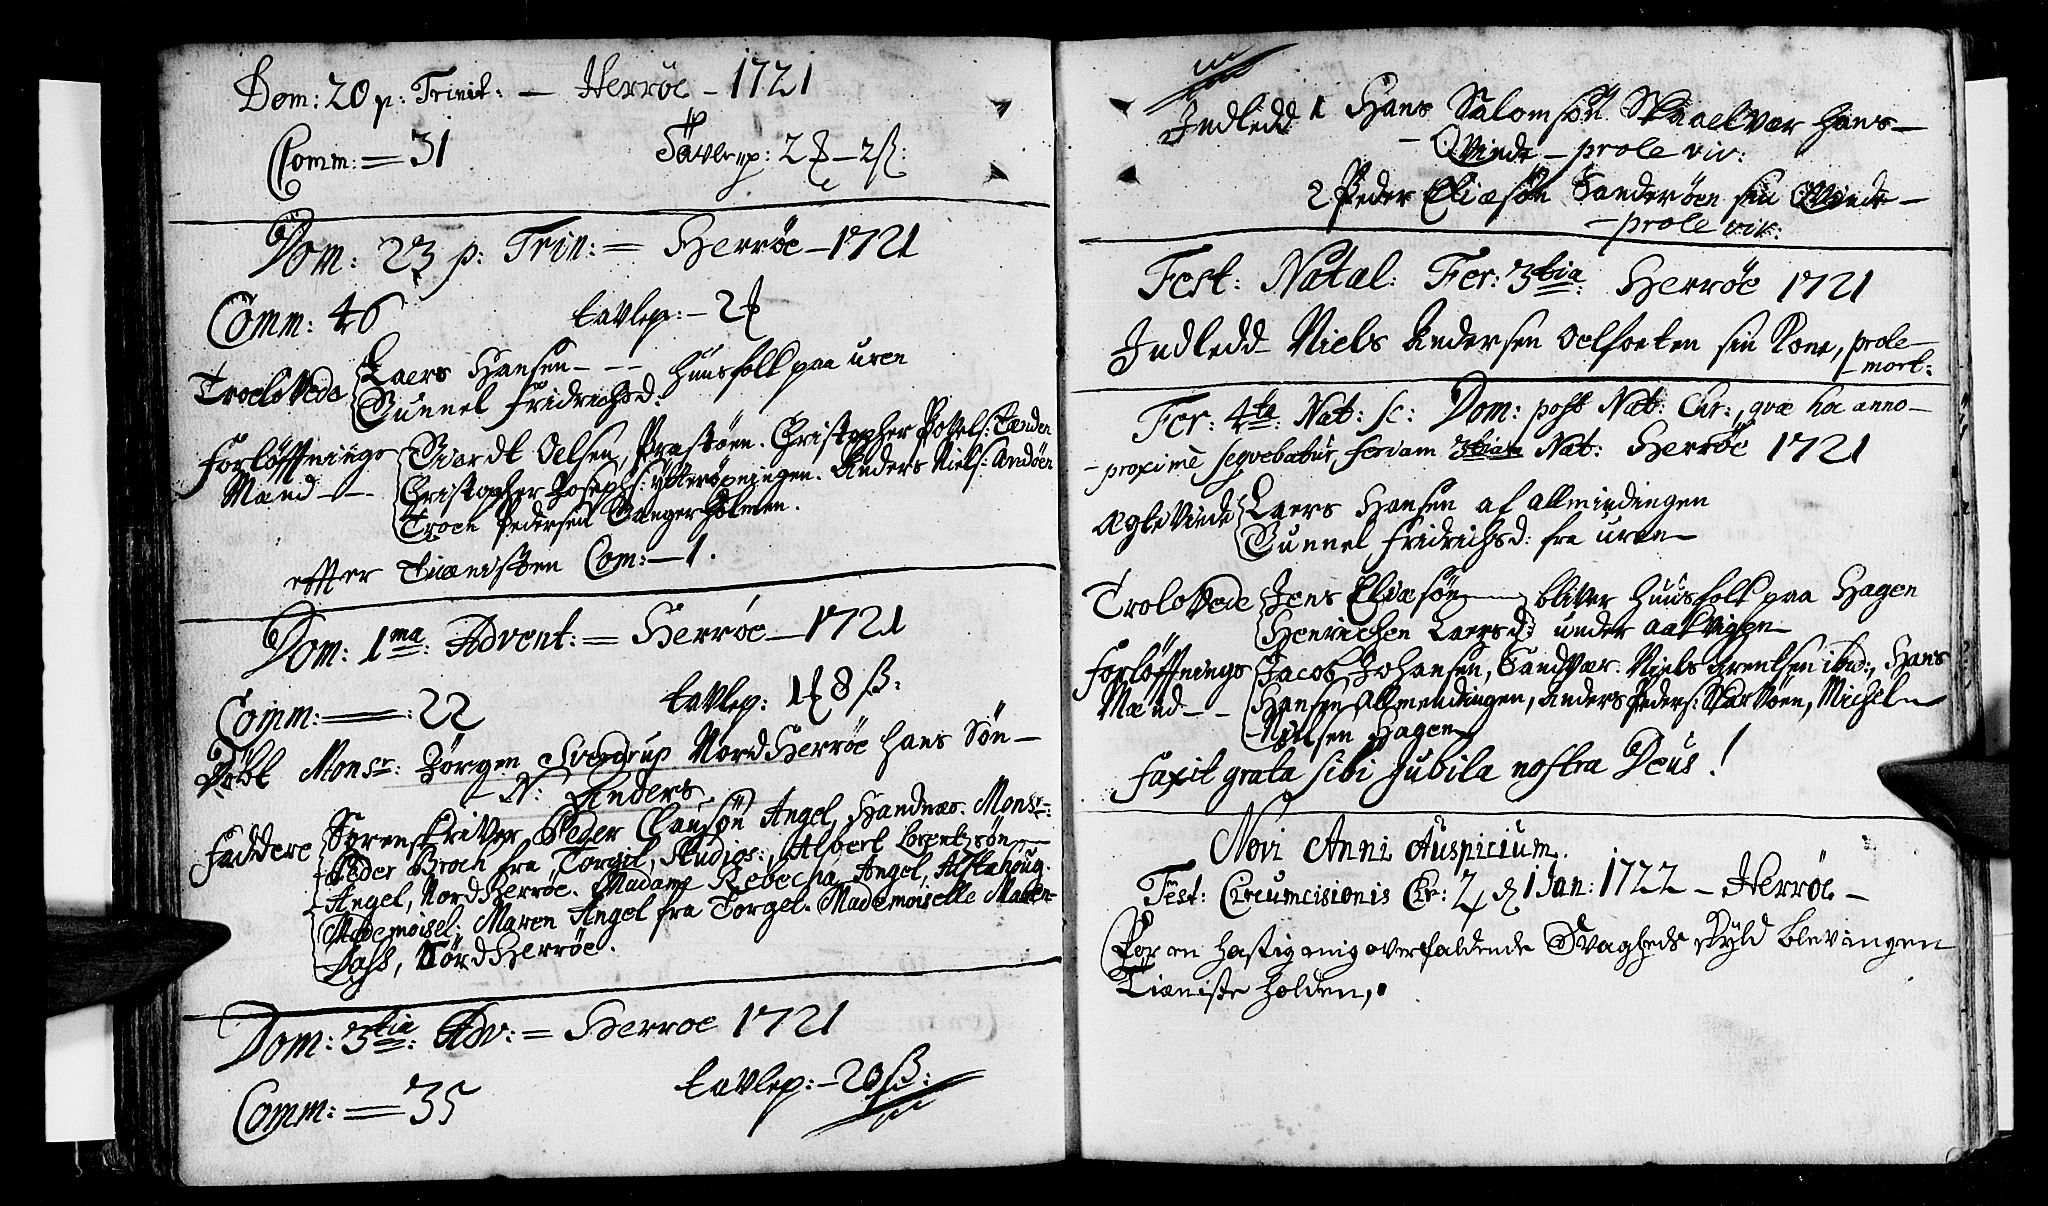 Dom: 20 p: Trinit: — Herröe – 1721
Comm: = 31 Tavlep: 2 – 2 ß:
Dom: 23 p: Trin: = Herröe – 1721
Comm: 46 tavlep: – 2
Troelovede Laers Hansen - - - huusfolk paa uren
Gunnel Fridrichsd:
Forløffnings Sivardt Oelsen, Præstöen. Christopher Povels: Tænden
Mænd — Christopher Josephs: Ytteröpningen. Anders Niels: Andöen
Troen Pedersen Sanger holmen.
effter Tienisten Com: — 1.
Dom: 1ma: Advent: = Herröe — 1721
Comm: = : 22 tavlep: 1 8 ß:
Döbt Monsr: Jörgen Svedrup Nord Herröe hans Sön –
– N: Anders
Faddere Sorenskriver Peder Clausön Angel, Handnæs. Monsr:
Peder Broch fra Torgil, Studios:, Albert Lorentzsön –
Angel, Nord Herröe. Madame Rebecha Angel, Alstahoug.
Mademoisel: Maren Angel fra Torgel. Mademoiselle Maren
Dass, Nörd Herröe.
Dom: 3tia: Adv: = Herroe 1721
Comm: = 35 tavlep: – 20 ß:
Indledd 1 Hans Salomsön Skaalvær hans –
– Qvinde – prole viv:
2 Peder Eliæsön Sanderöen sin Qvinde –
– prole viv:
Fest: Natal: Fer: 3tia: Herröe 1721
Indledd Niels Andersen Oelfoeten sin Kone, prole –
– mort:
Fer: 4ta: Nat: sc: Dom: post Nat: Chr:, qvæ hoc anno –
– proximè seqvebatur feriam 3tiam Nat: Herröe 1721
Ægte Viede Laers Hansen af allmindingen
Gunnel Fridrichsd: fra uren –
Trolovede Jens Eliæsön — bliver huusfolk paa Hagen
Henrichen Laersd: under aakvigen
Forløffnings Jacob Johansen, Sandvær. Niels Arentsen ibid:, Hans
Mænd – – Hansen Allmendingen, Anders Peders: Skarvöen, Michel –
Nilsen Hagen
Faxit grata sibi Jubila nostra Deus!
Novi Anni Auspicium.
Fest: Circumcisionis Chr: 1 Jan: 1722 – Herröe –
For en hastig mig overfaldende Svagheds skyld blev ingen
Tieniste holden,